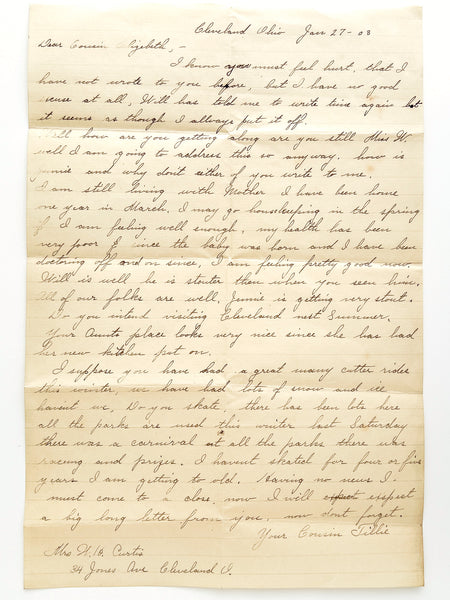 Cleveland Ohio Jan 27-03
Dear Cousin Elizebeth,-
I know you must feel hurt, that I
have not wrote to you before, but I have no good
excuse at all, Will has told me to write time again but
it seems as though I allways put it off.
Well how are you getting along are you still Miss W.
well I am going to address this so anyway. how is
Jennie and why dont either of you write to me.
I am still living with Mother I have been home
one year in March, I may go housekeeping in the spring
if I am feeling well enough, my health has been
very poor since the baby was born and I have been
doctoring off and on since, I am feeling pretty good now.
Will is well he is stouter then when you seen him.
All of our folks are well, Jennie is getting very stout.
Do you intend visiting Cleveland next Summer.
Your Aunts place looks very nice since she has had
her new kitchen put on.
I suppose you have had a great many cutter rides
this winter, we have had lots of snow and ice
havent we, Do you skate, there has been lots here
all the parks are used this winter last Saturday
there was a carnival at all the parks there was
raceing and prizes. I havent skated for four or five
years I am getting to old. Having no news I
must come to a close, now I will expect
a big long letter from you, now dont forget.
Your Cousin Tillie
Mrs W. B. Curtis
34 Jones Ave Cleveland O.